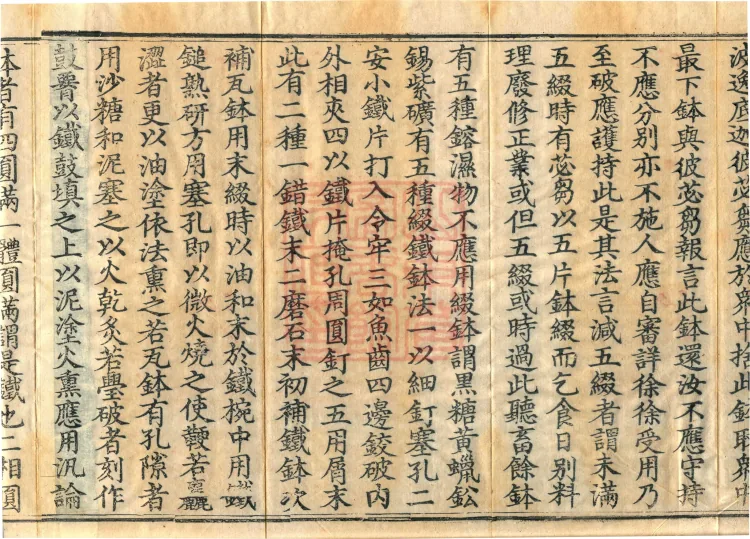 波逸底迦彼苾芻應於眾中捨此鉢取眾中
最下鉢與彼苾芻報言此鉢還汝不應守持
不應分別亦不施人應自審詳徐徐受用乃
至破應護持此是其法言減五綴者謂未滿
五綴時有苾芻以五片鉢綴而乞食日別料
理廢修正業或但五綴或時過此聽畜餘鉢
有五種鎔濕物不應用綴鉢謂黑糖黃蠟鈆
錫紫礦有五種綴鐵鉢法一以細釘塞孔二
安小鐵片打入令牢三如魚齒四邊鉸破內
外相夾四以鐵片掩孔周圓釘之五用屑末
此有二種一錯鐵末二磨石末初補鐵鉢次
補瓦鉢用末綴時以油和末於鐵椀中用鐵
鎚熟研方用塞孔即以微火燒之使鞕若麤
澀者更以油塗依法熏之若瓦鉢有孔隙者
用沙糖和泥塞之以火乾炙若璺破者刻作
鼓以鐵鼓填之上以泥塗火熏應用汎論
鉢者有四圓滿一體圓滿謂是鐵也二相圓